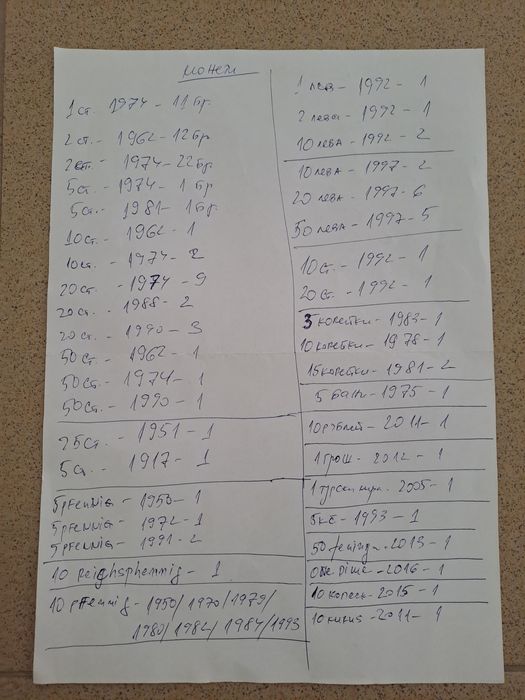 монети
1 ст. 1974 - 11 бр.
2 ст. - 1962 - 12 бр
2 ст. - 1974 - 22 бр
5 ст. - 1974 - 1 бр
5 ст. - 1981 - 1 бр.
10 ст. - 1962 - 1
10 ст. - 1974 - 2
20 ст. - 1974 - 9
20 ст. - 1988 - 2
20 ст. - 1990 - 3
50 ст. - 1962 - 1
50 ст. - 1974 - 1
50 ст. - 1990 - 1
25 ст. - 1951 - 1
5 ст. - 1917 - 1
5 pfennig - 1950 - 1
5 pfennig - 1972 - 1
5 pfennig - 1991 - 2
10 reighsphennig - 1
10 pfennig - 1950/1970/1979/
1980/1982/1984/1993
1 лев - 1992 - 1
2 лева - 1992 - 1
10 лева - 1992 - 2
10 лева - 1997 - 2
20 лева - 1997 - 6
50 лева - 1997 - 5
10 ст. - 1992 - 1
20 ст. - 1992 - 1
3 копейки - 1983 - 1
10 копейки - 1978 - 1
15 копейки - 1981 - 2
5 бани - 1975 - 1
10 рублей - 2011 - 1
1 грош - 2012 - 1
1 турска лира - 2005 - 1
5 kč - 1993 - 1
50 fening - 2013 - 1
one dime - 2016 - 1
10 копеек - 2015 - 1
10 - 2011 - 1